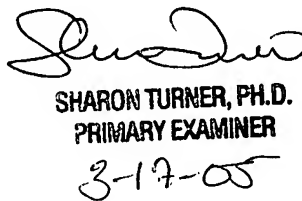 SHARON TURNER, PH.D.
PRIMARY EXAMINER
3-17-05